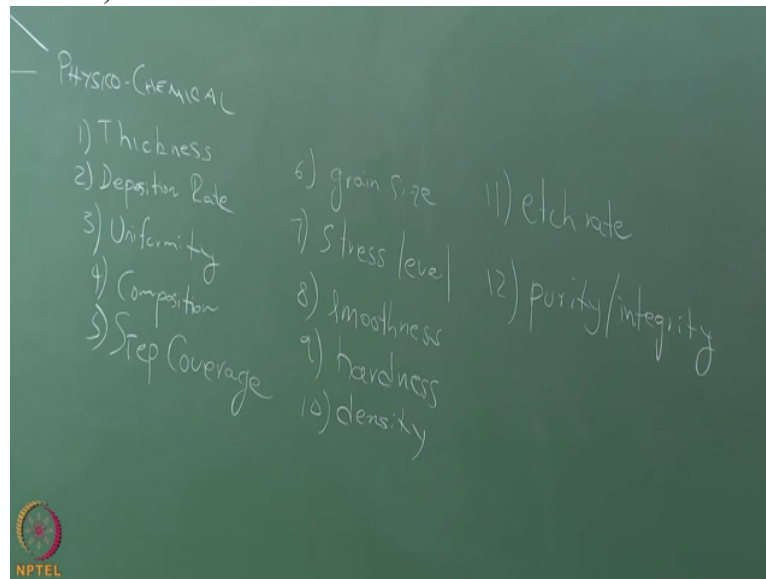 PHYSICO-CHEMICAL
1) Thickness
2) Deposition Rate
3) Uniformity
4) Composition
5) Step Coverage
6) grain size
7) Stress level
8) Smoothness
9) hardness
10) density
11) etch rate
12) purity/integrity
NPTEL